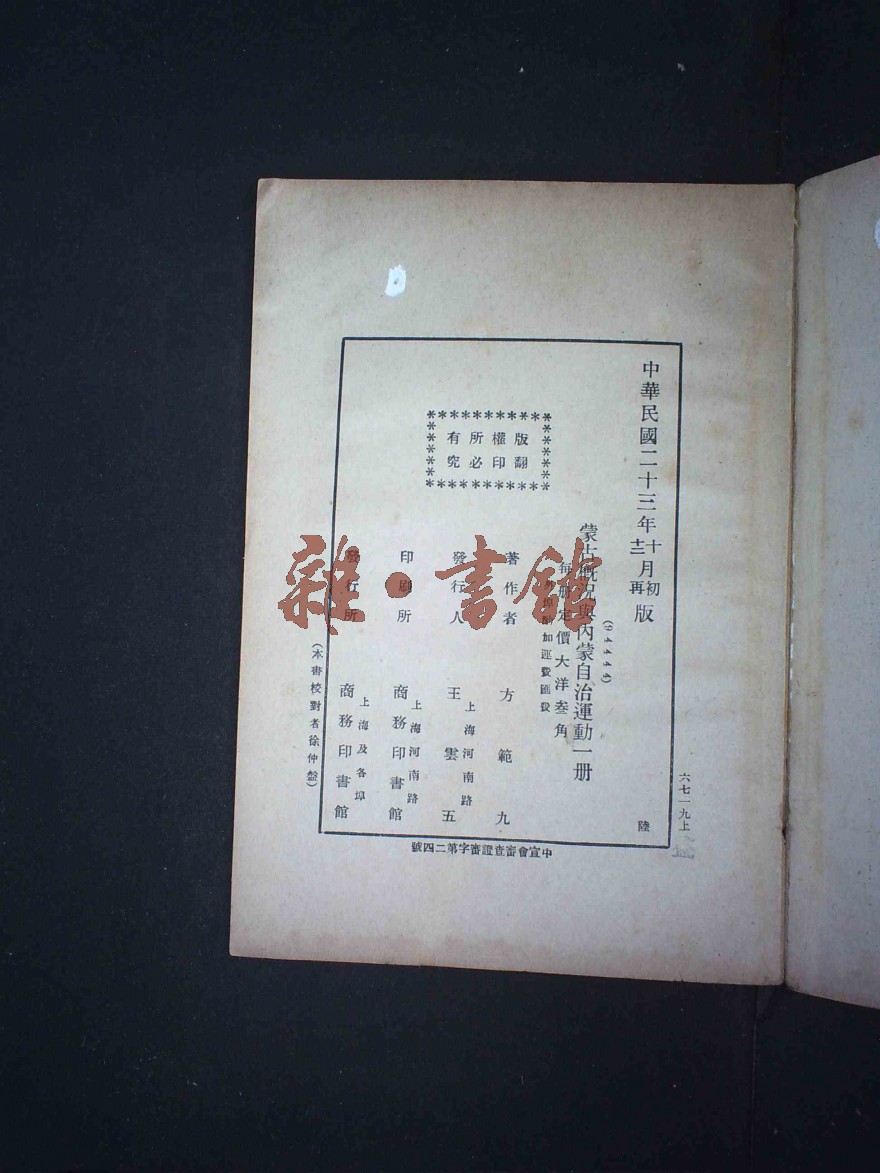 中華民國二十三年十月初版
十二月再版
(52222平)
蒙古概況與內蒙自治運動一册
每册定價大洋叁角
外埠酌加運費匯費
著作者 方範九
發行人 王雲五
上海河南路
印刷所 商務印書館
上海河南路
發行所 商務印書館
上海及各埠
版權所有
翻印必究
(本書校對者徐仲盤)
六七一九上
陸
中宣會審查證審字第二四號
雜·書館